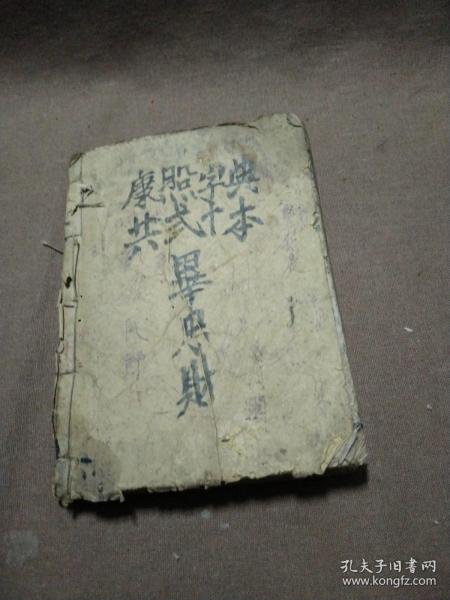 康熙字典
共弍十本
畢忠財
孔夫子旧书网
www.kongfz.com